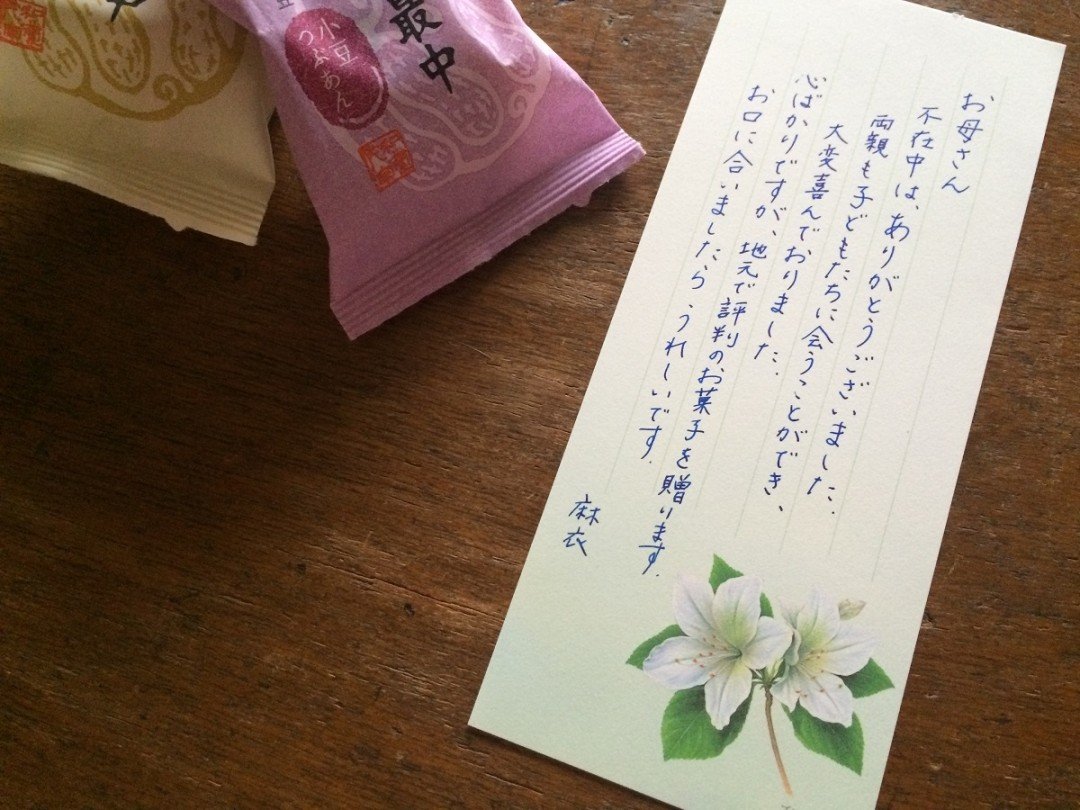 お母さん
不在中は、ありがとうございました。
両親も子どもたちに会うことができ、
大変喜んでおりました。
心ばかりですが、地元で評判のお菓子を贈ります。
お口に合いましたら、うれしいです。
麻衣
最中
小豆
つぶあん